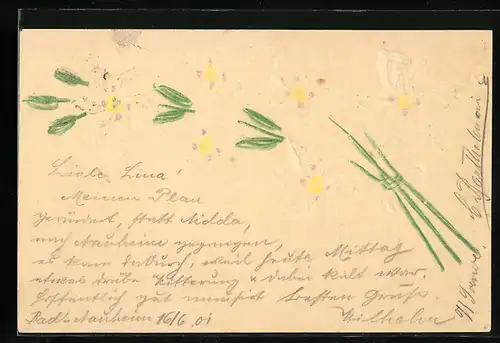 Liebe Lina!
Meinen Plan
geändert, statt Nidda,
nach Nauheim gegangen,
es kam dadurch, weil heute Mittag
etwas trübe Witterung & dabei kalt war.
Hoffentlich gut amüsiert besten Gruß.
Bad-Nauheim 16/6.01 Wilhelm